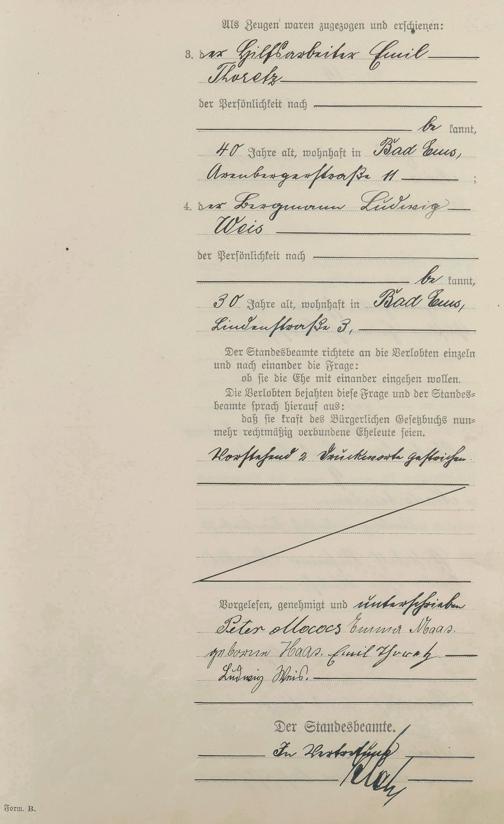 Als Zeugen waren zugezogen und erschienen:
3. der Hilfsarbeiter Emil
Thoretz
der Persönlichkeit nach
be kannt,
40 Jahre alt, wohnhaft in Bad Ems,
Arenbergerstraße 11 ;
4. der Bergmann Ludwig
Weis
der Persönlichkeit nach
be kannt,
30 Jahre alt, wohnhaft in Bad Ems,
Lindenstraße 3,
Der Standesbeamte richtete an die Verlobten einzeln
und nach einander die Frage:
ob sie die Ehe mit einander eingehen wollen.
Die Verlobten bejahten diese Frage und der Standes-
beamte sprach hierauf aus:
daß sie kraft des Bürgerlichen Gesetzbuchs nun-
mehr rechtmäßig verbundene Eheleute seien.
Vorstehend 2 Druckworte gestrichen.
Vorgelesen, genehmigt und unterschrieben
Peter Emma Maas
geborne Haas. Emil Thoretz
Ludwig Weis.
Der Standesbeamte.
In Vertretung
Form. B.